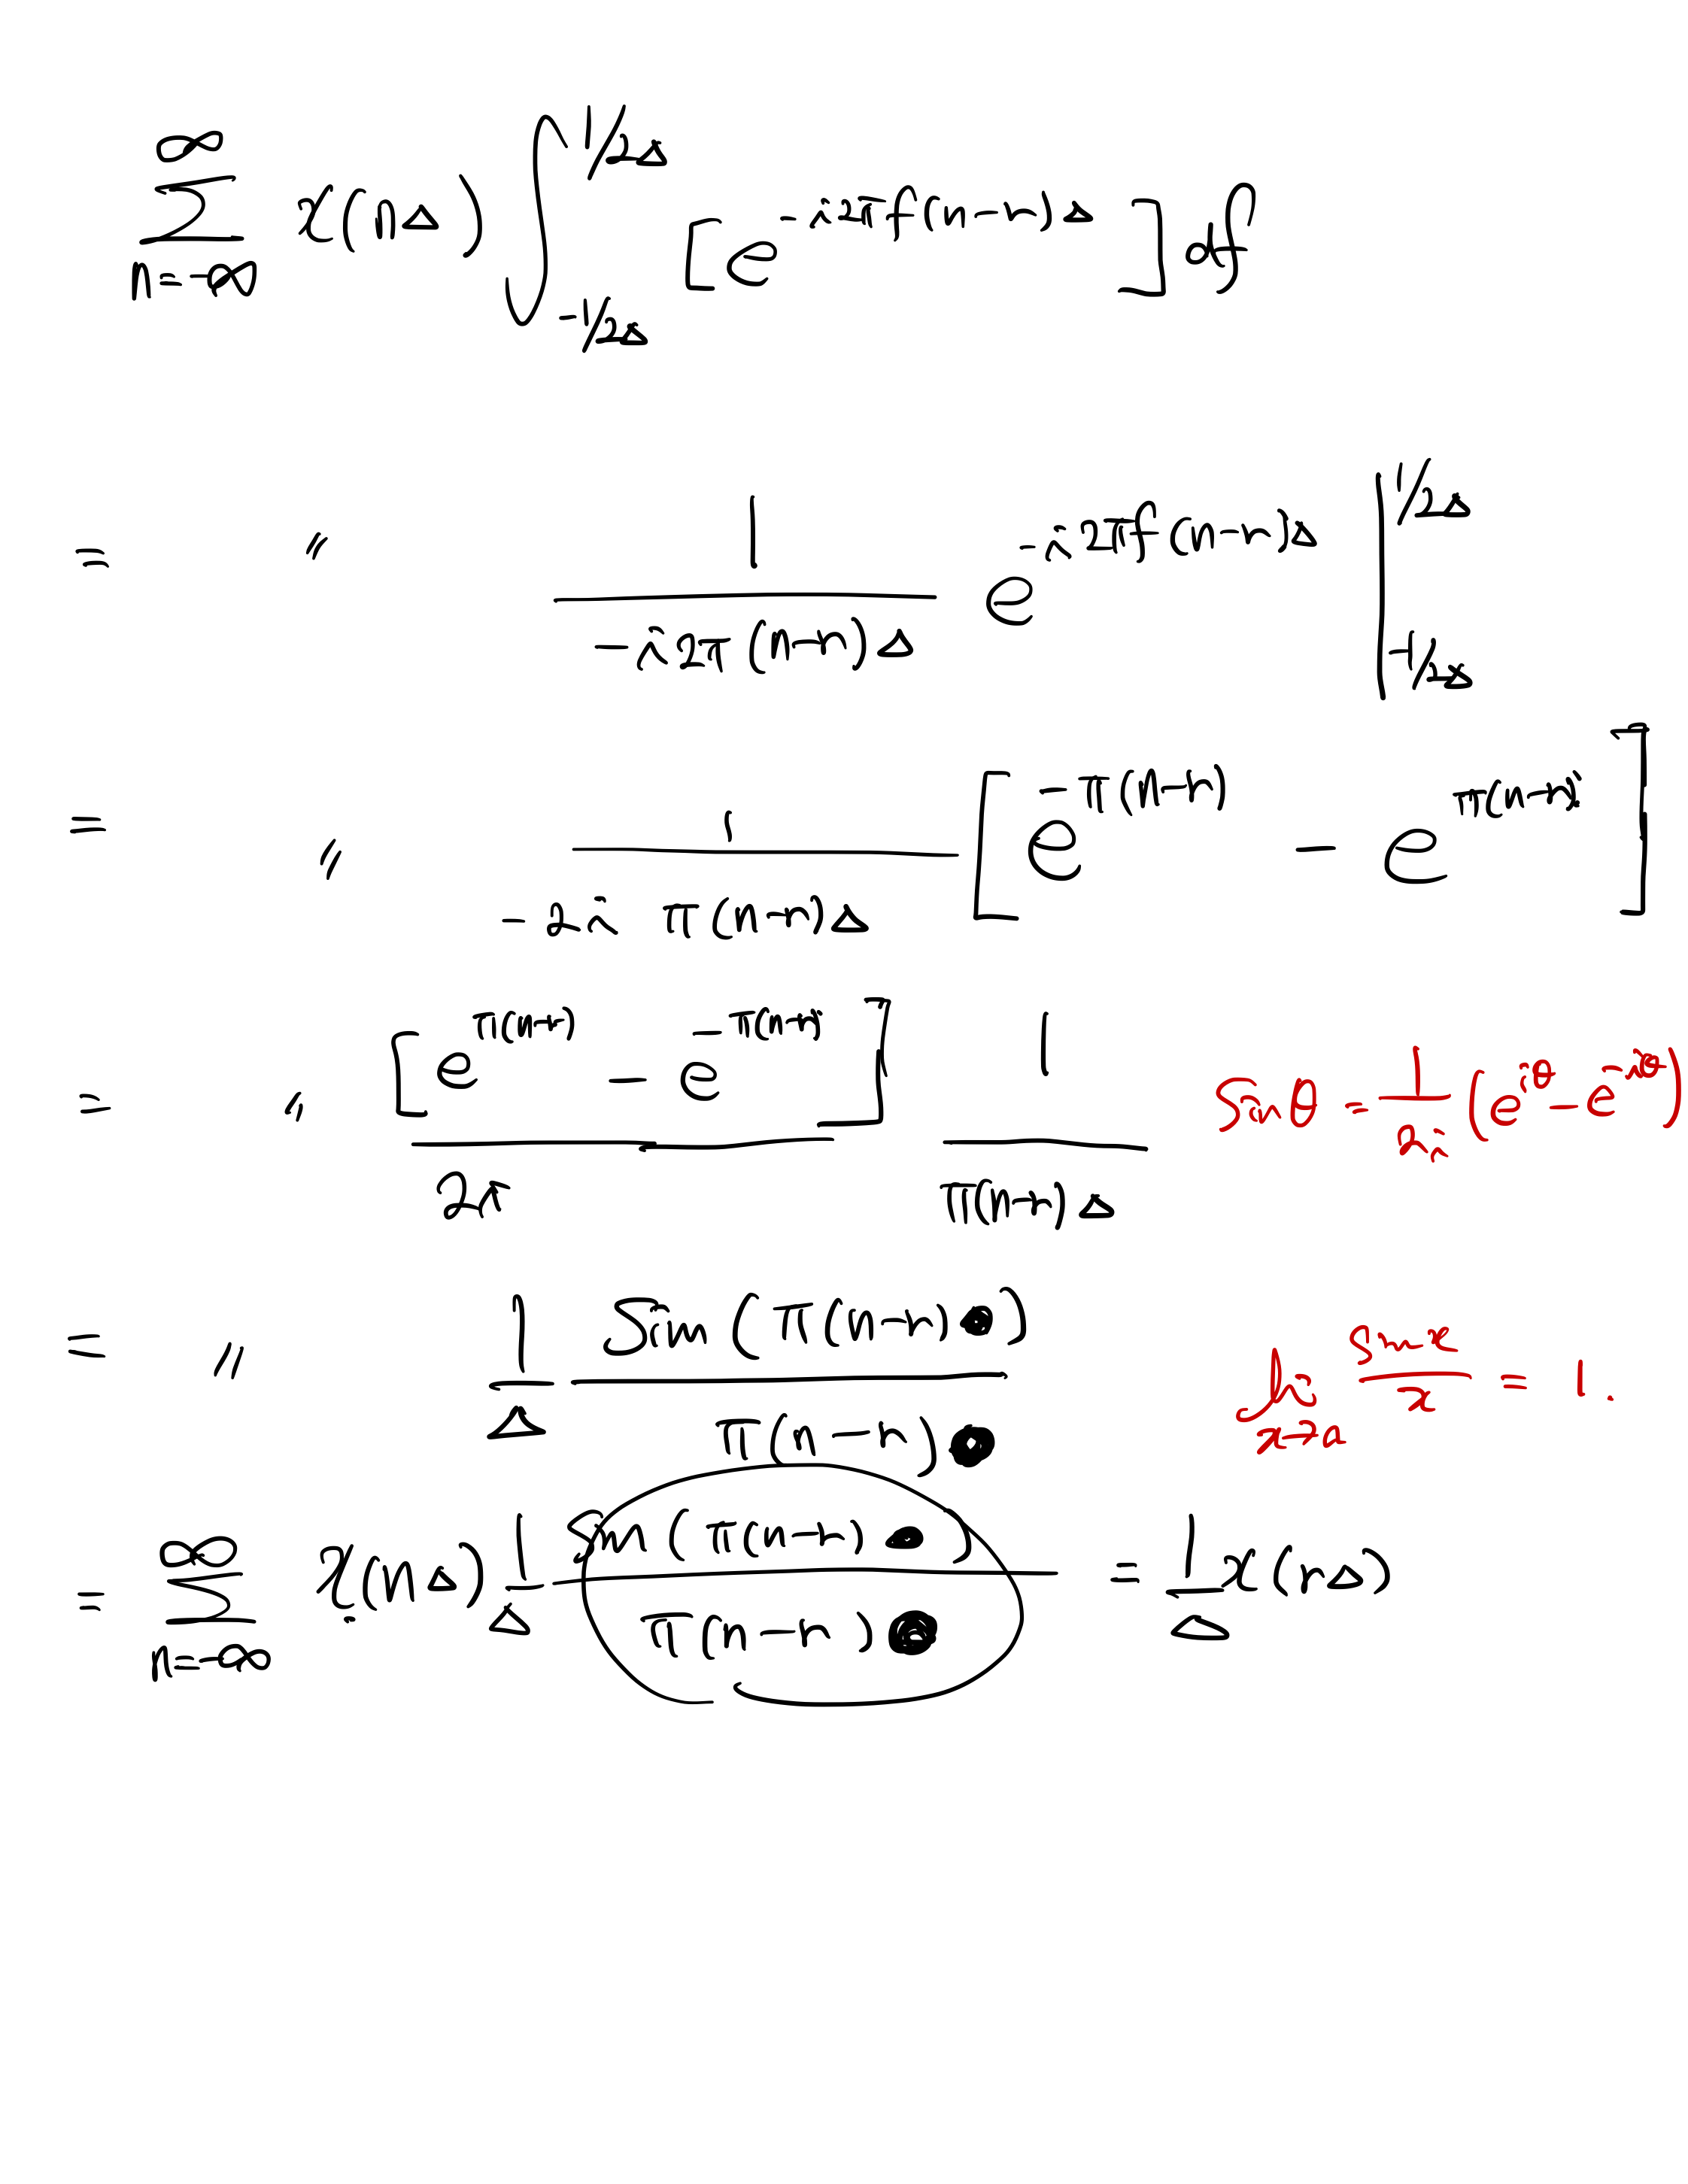 ∞ ∑ n=-∞ x(nΔ) ∫ 1/2Δ -1/2Δ [e^{-i2πf(n-r)Δ}] df
= 〃 1/(-i2π(n-r)Δ) e^{-i2πf(n-r)Δ} | 1/2Δ -1/2Δ
= 〃 1/(-2i π(n-r)Δ) [e^{-π(n-r)} - e^{π(n-r)i}]
= 〃 [e^{π(n-r)} - e^{-π(n-r)i}]/2i 1/(π(n-r)Δ) Sinθ = 1/2i (e^{iθ} - e^{-iθ})
= 〃 1/Δ Sin(π(n-r))/π(n-r) lim x→0 sin x/x = 1.
= ∞ ∑ n=-∞ x(nΔ) 1/Δ Sin(π(n-r))/π(n-r) = 1/Δ x(rΔ)